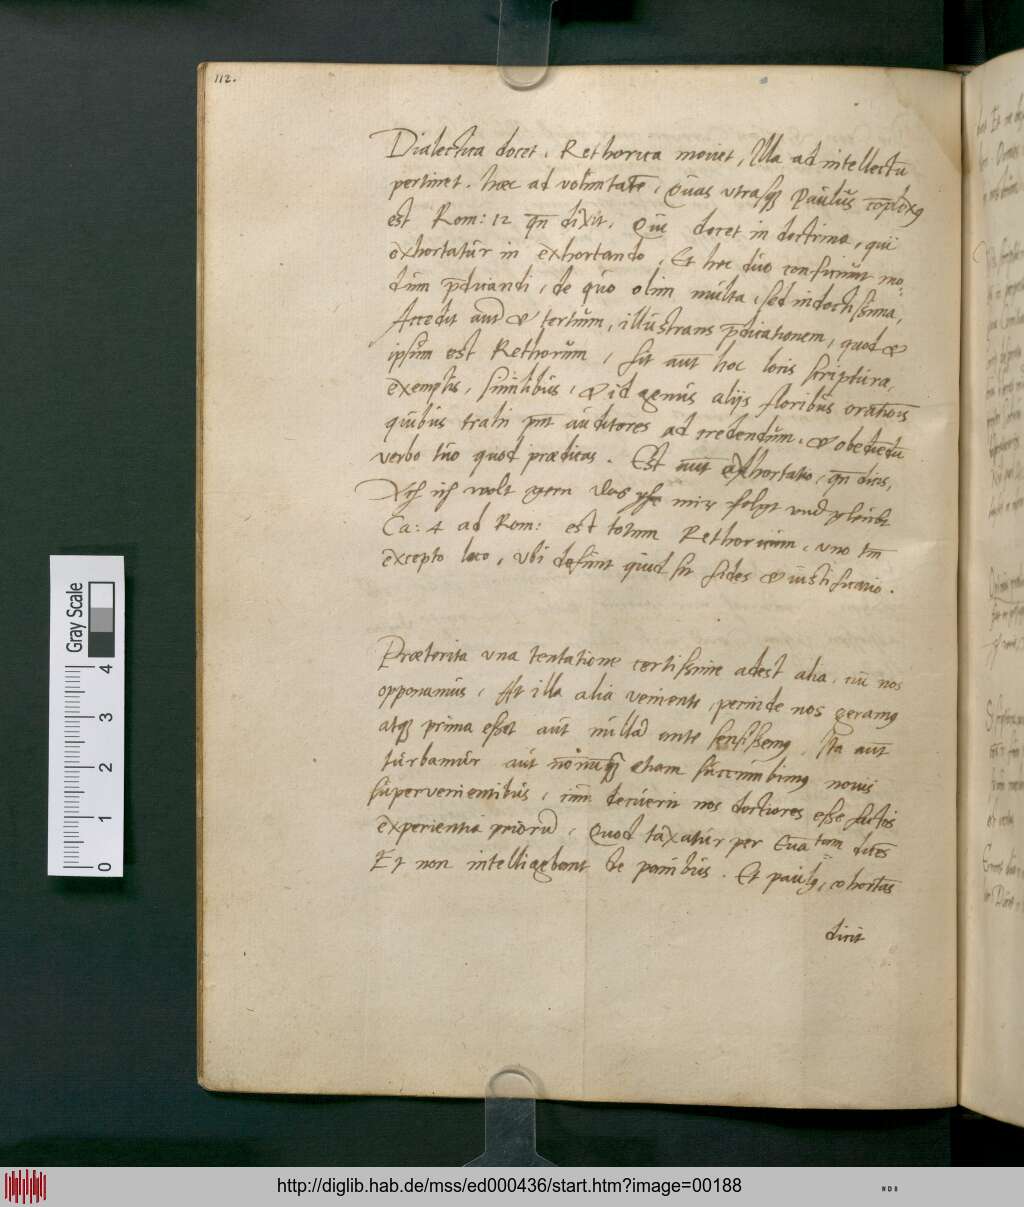 112.
Dialectica docet, Rethorica mouet, Illa ad intellectū
pertinet. haec ad voluntatē, Quas vtrasq Paulus cōplexq
est Rom: 12 qn dixit. Qui docet in doctrina, qui
exhortatur in exhortando. Et hec duo conficiunt mo
dum pdicandi, de quo olim multa, sed indoctissima,
Accedit aūt & tertium, illustrans pdicationem, quod &
ipsum est Rethoricum, fit aūt hoc locis scripturae,
exemplis, similibus, & id genus alijs floribus orationis
quibus trahi pnt auditores ad credendum, & obediendū
verbo tuo quod praedicas. Est aūt exhortatio, qn dicis,
Ach ich wolt gern das yhr mir folgt vnd gleubt
Ca: 4 ad Rom: est totum Rethoricum, vno tm
excepto loco, vbi definit quid sit fides & iustificatio.
Praeterita vna tentatione certissime adest alia, cui nos
opponamus, At illa alia veniente, perinde nos geramq
atq prima esset aut nullā ante sensissemq. Ita aūt
turbamur aut nōnunq etiam succumbimq nouis
superuenientibus, cum decuerit nos doctiores esse factos
experientia priorū, Quod taxatur per Euā tam dicēs
Et non intelligebant de panibus. Et paulq, cohortās
dicit
Gray Scale
4
3
2
1
0
http://diglib.hab.de/mss/ed000436/start.htm?image=00188